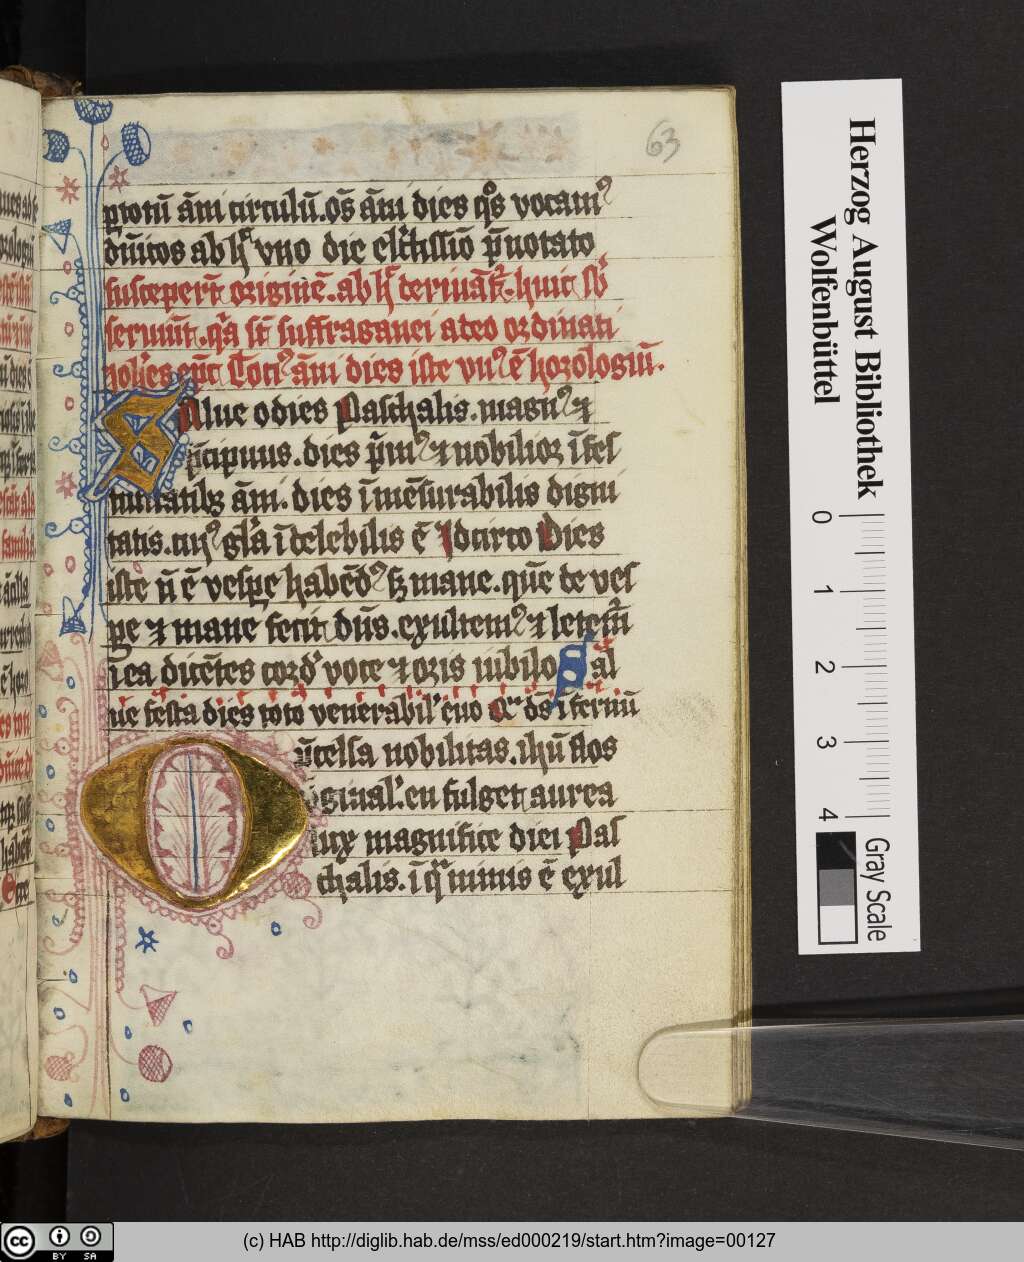 63
ꝓtotū ām circulū. os̄ ām dies qͦs vocamꝰ
dn̄icos ab h uno die elc̄tissīo p̄notato
susceper̄t originē. ab h deriuāt᷑. huic s
seruiūt. qͣa st̄ suffraganei a deo ordinati
Totꝰ ām dies iste unꝰ ē horologiū.
Alue o dies Paschalis. magnꝰ ⁊
p̄cipuus. dies p̄mꝰ ⁊ nobilior īt fes
tiuitatibꝫ ām. dies īmēsurabilis digni
tatis. cuiꝰ gl̄a īdelebilis ē Idcirco Dies
iste n̄ ē vespe habēdꝰ sꝫ mane. qn̄e de ves
pe ⁊ mane fecit dn̄s. exultemꝰ ⁊ letem̄
ī ea dicētes cord voce ⁊ oris iubilo Sal
ue festa dies toto venerabil euo Qͣ ds̄ īfernū
n̄celsa nobilitas. ihū flos
v̄ginal. en fulget aurea
lux magnifice diei Pas
chalis. ī qͣ nimis ē exul
Herzog August Bibliothek
Wolfenbüttel
0 1 2 3 4
Gray Scale
(c) HAB http://diglib.hab.de/mss/ed000219/start.htm?image=00127
cc BY SA